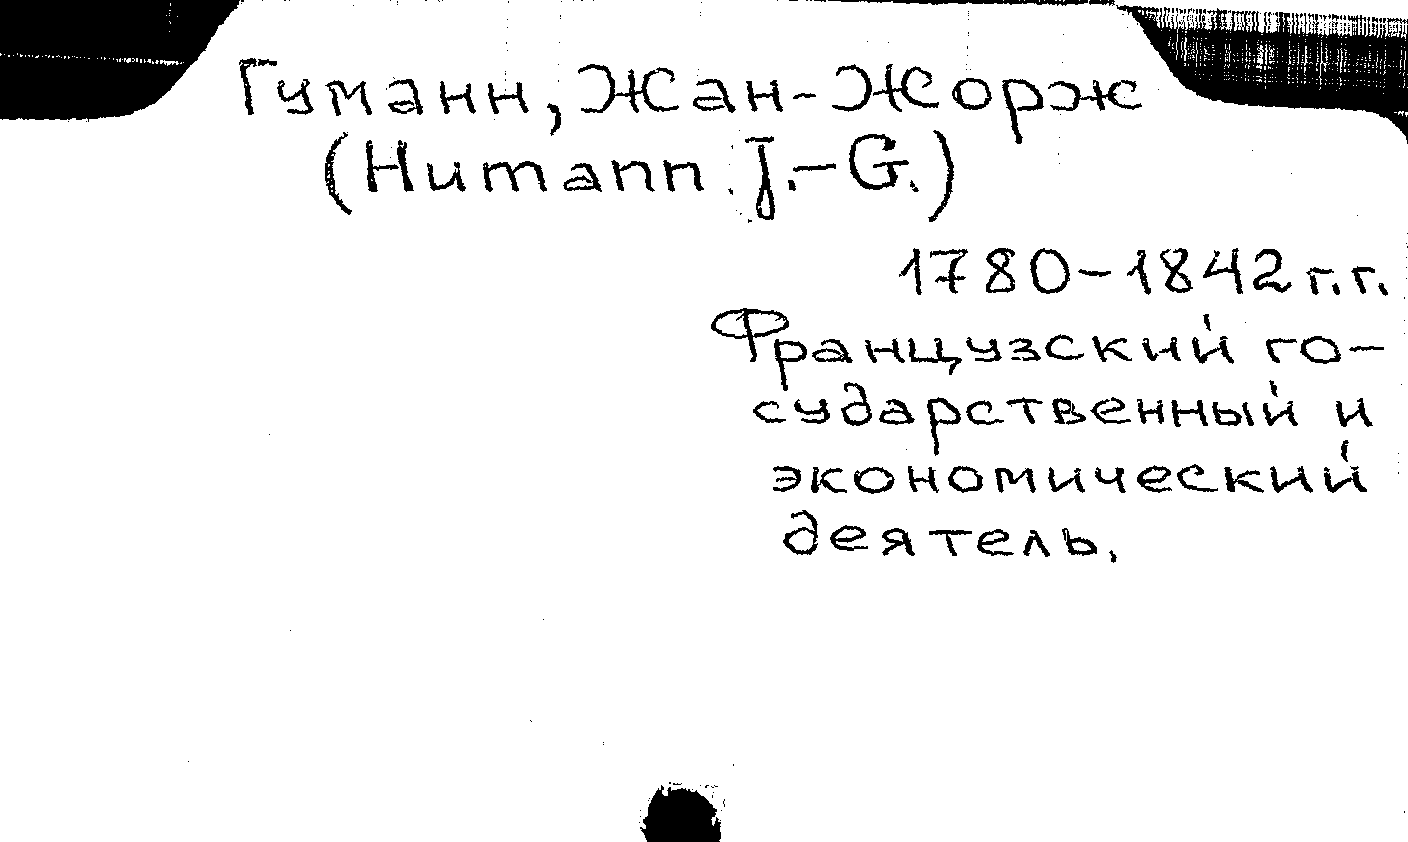 Гуманн, Жан-Жорж
(Humann J.-G.)
1780-1842 г.г.
Французский го-
сударственный и
экономический
деятель.